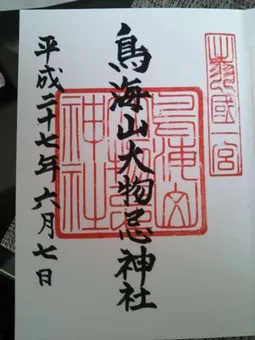 出羽國一宮
鳥海山大物忌神社
鳥海山大物忌神社
平成二十七年六月七日